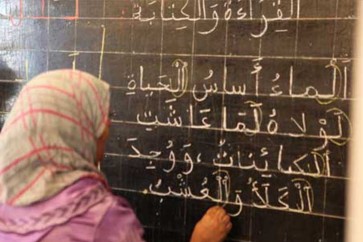 القِرَاءَةُ وَالْكِتَابَةُ
أَلْمَاءُ أَسَاسُ الْحَيَاةِ
لَوْلَاهُ لَمَّا عَاشَتِ
الْكَائِنَاتُ، وَوُجِدَ
الْكَلَأُ وَالْعُشْبُ